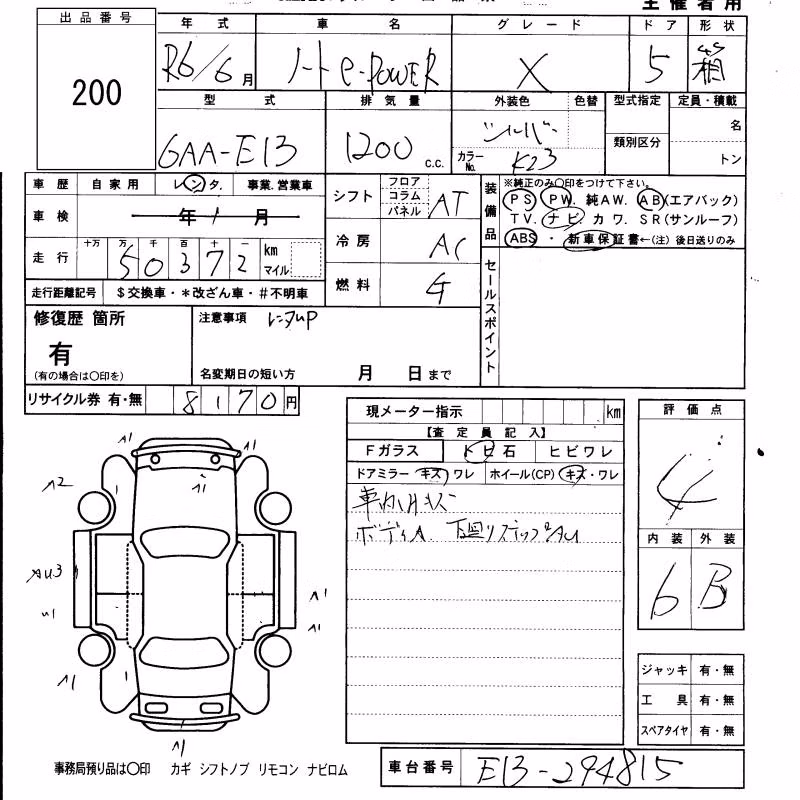 主催者用
出品番号
200
年式 車名 グレード ドア 形状
R6/6月 ノート e-POWER X 5 箱
型式 排気量 外装色 色替 型式指定 定員・積載
6AA-E13 1200 c.c. シルバー 名
類別区分
カラーNo. K23 トン
車歴 自家用 レンタ. 事業.営業車
車検 年 月
走行 十万 万 千 百 十 一 km マイル
50372
走行距離記号 $交換車・*改ざん車・#不明車
シフト フロア コラム パネル AT
冷房 AC
燃料 ガ
装備品 ※純正のみ〇印をつけて下さい。
PS PW. 純AW. AB(エアバック)
TV. ナビ. カワ. SR(サンルーフ)
ABS ・ 新車保証書←(注)後日送りのみ
セールスポイント
修復歴 箇所
有
(有の場合は〇印を)
注意事項 レンタup
名変期日の短い方 月 日まで
リサイクル券 有・無 8170円
現メーター指示 km
【査定員記入】
Fガラス トビ石 ヒビワレ
ドアミラー キズ ワレ ホイール(CP) キズ・ワレ
車内ハゲキズ
ボディA 下廻リステップAU
評価点
4
内装 外装
6 B
A1 A1
A2 A1
AU3
A1
A1
A1
A1
ジャッキ 有・無
工具 有・無
スペアタイヤ 有・無
事務局預り品は〇印 カギ シフトノブ リモコン ナビロム
車台番号 E13-294815